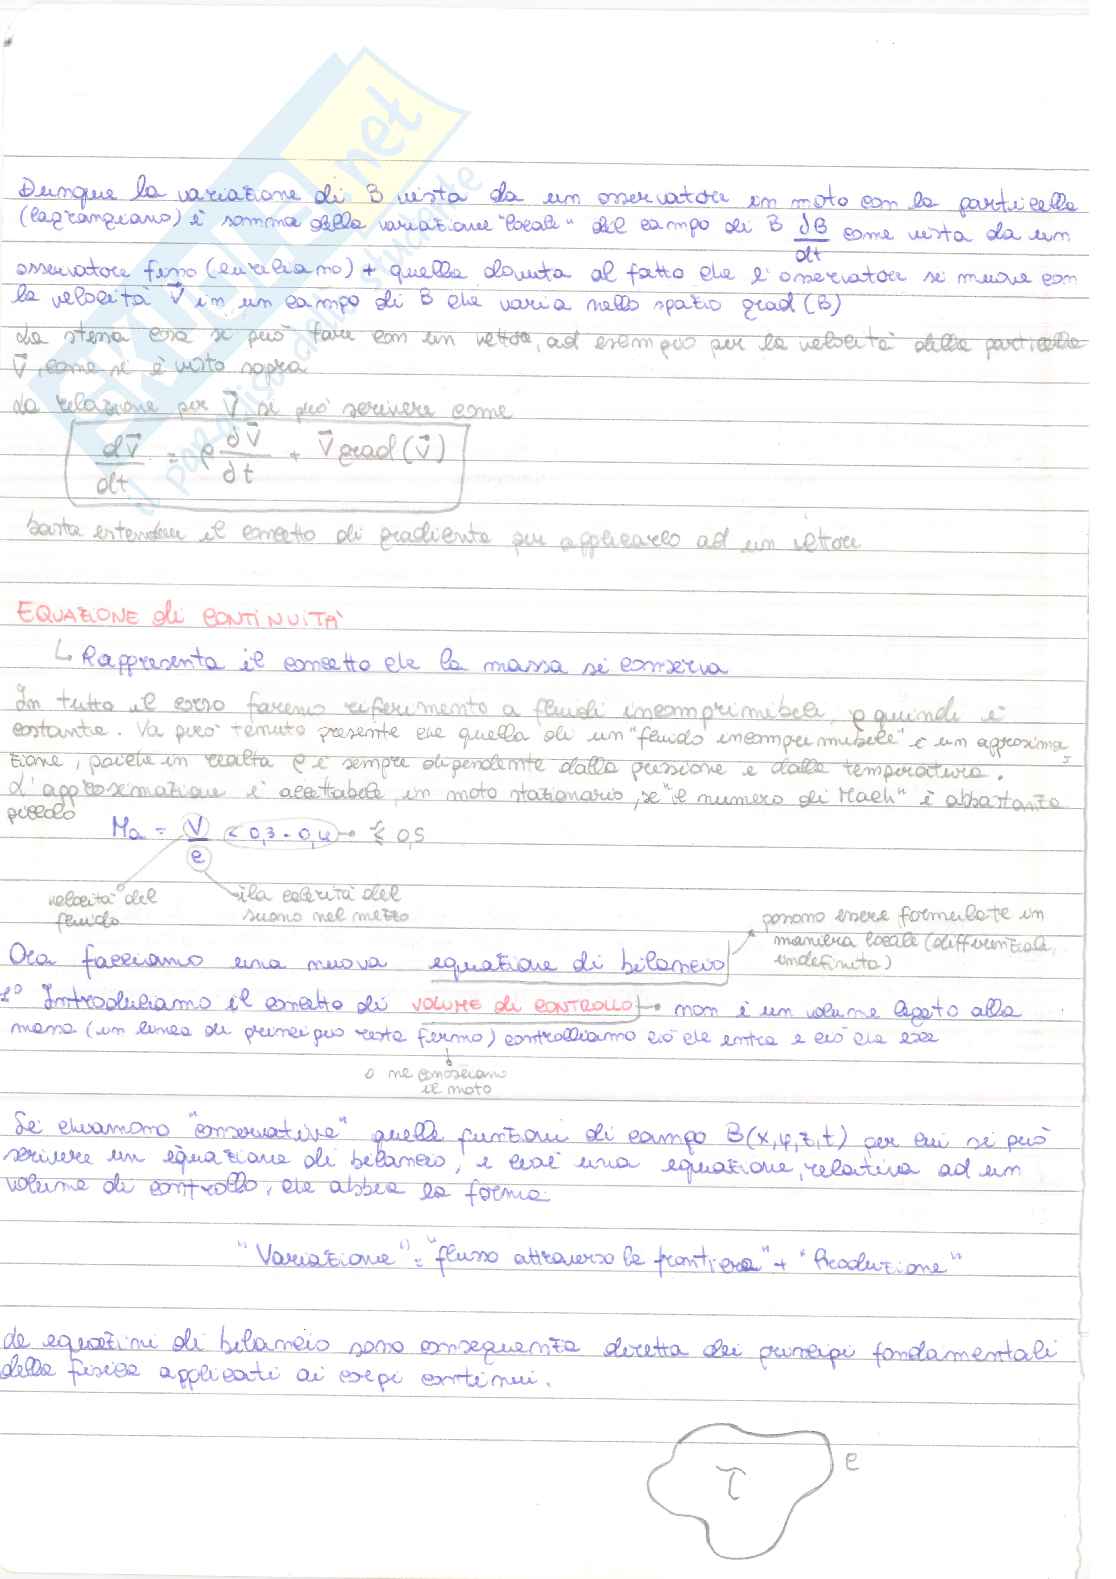 Dunque la variazione di B vista da un osservatore in moto con la particella
(lagrangiano) è somma della variazione "locale" del campo di B ∂B/dt come vista da un
osservatore fisso (euleriano) + quella dovuta al fatto che l'osservatore si muove con
la velocità V⃗ in un campo di B che varia nello spazio grad(B)
La stessa cosa si può fare con un vettore, ad esempio per la velocità della particella
V⃗, come si è visto sopra
La relazione per V⃗ si può scrivere come
dV⃗/dt = ρ ∂V⃗/∂t + V⃗ grad(V⃗)
basta estendere il concetto di gradiente per applicarlo ad un vettore
EQUAZIONE di CONTINUITÀ
↳ Rappresenta il concetto che la massa si conserva
In tutto il corso faremo riferimento a fluidi incomprimibili, ρ quindi è
costante. Va però tenuto presente che quella di un "fluido incomprimibile" è un approssima
zione, poiché in realtà ρ è sempre dipendente dalla pressione e dalla temperatura.
L'approssimazione è accettabile, in moto stazionario, se "il numero di Mach" è abbastanza
piccolo
Ma = V/c < 0,3 - 0,4 → ≤ 0,5
velocità del
fluido
la celerità del
suono nel mezzo
possono essere formulate in
maniera locale (differenziale,
indefinita)
Ora facciamo una nuova equazione di bilancio
1° Introduciamo il concetto di VOLUME di CONTROLLO → non è un volume legato alla
massa (in linea di principio resta fermo) controlliamo ciò che entra e ciò che esce
o ne conosciamo
il moto
Si chiamano "conservative" quelle funzioni di campo B(x,y,z,t) per cui si può
scrivere un equazione di bilancio, e cioè una equazione, relativa ad un
volume di controllo, che abbia la forma
"Variazione" = "flusso attraverso la frontiera" + "Produzione"
Le equazini di bilancio sono conseguenza diretta dei principi fondamentali
della fisica applicati ai corpi continui.
τ
e
SKUOLA.net
il paradiso dello studente